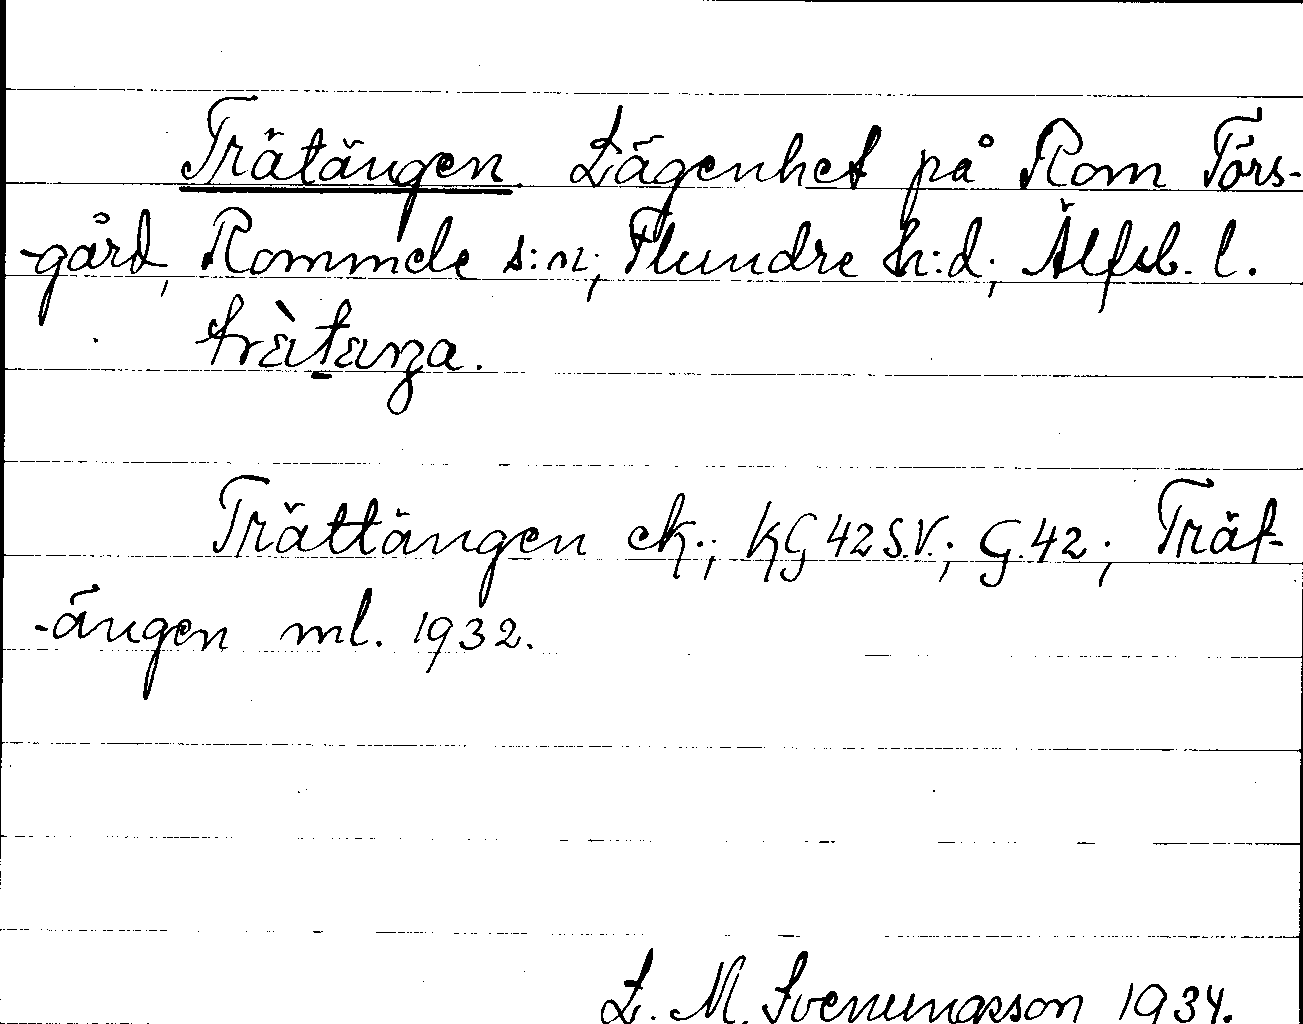 Trätängen. Lägenhet på Rom Tors-
-gård, Rommele s:n; Flundre h:d; Älfsb. l.
trὲ̀tɛŋa.
Trättängen ek.; KG 42 S.V.; G. 42; Trät-
-ängen ml. 1932.
L. M. Svenungsson 1934.